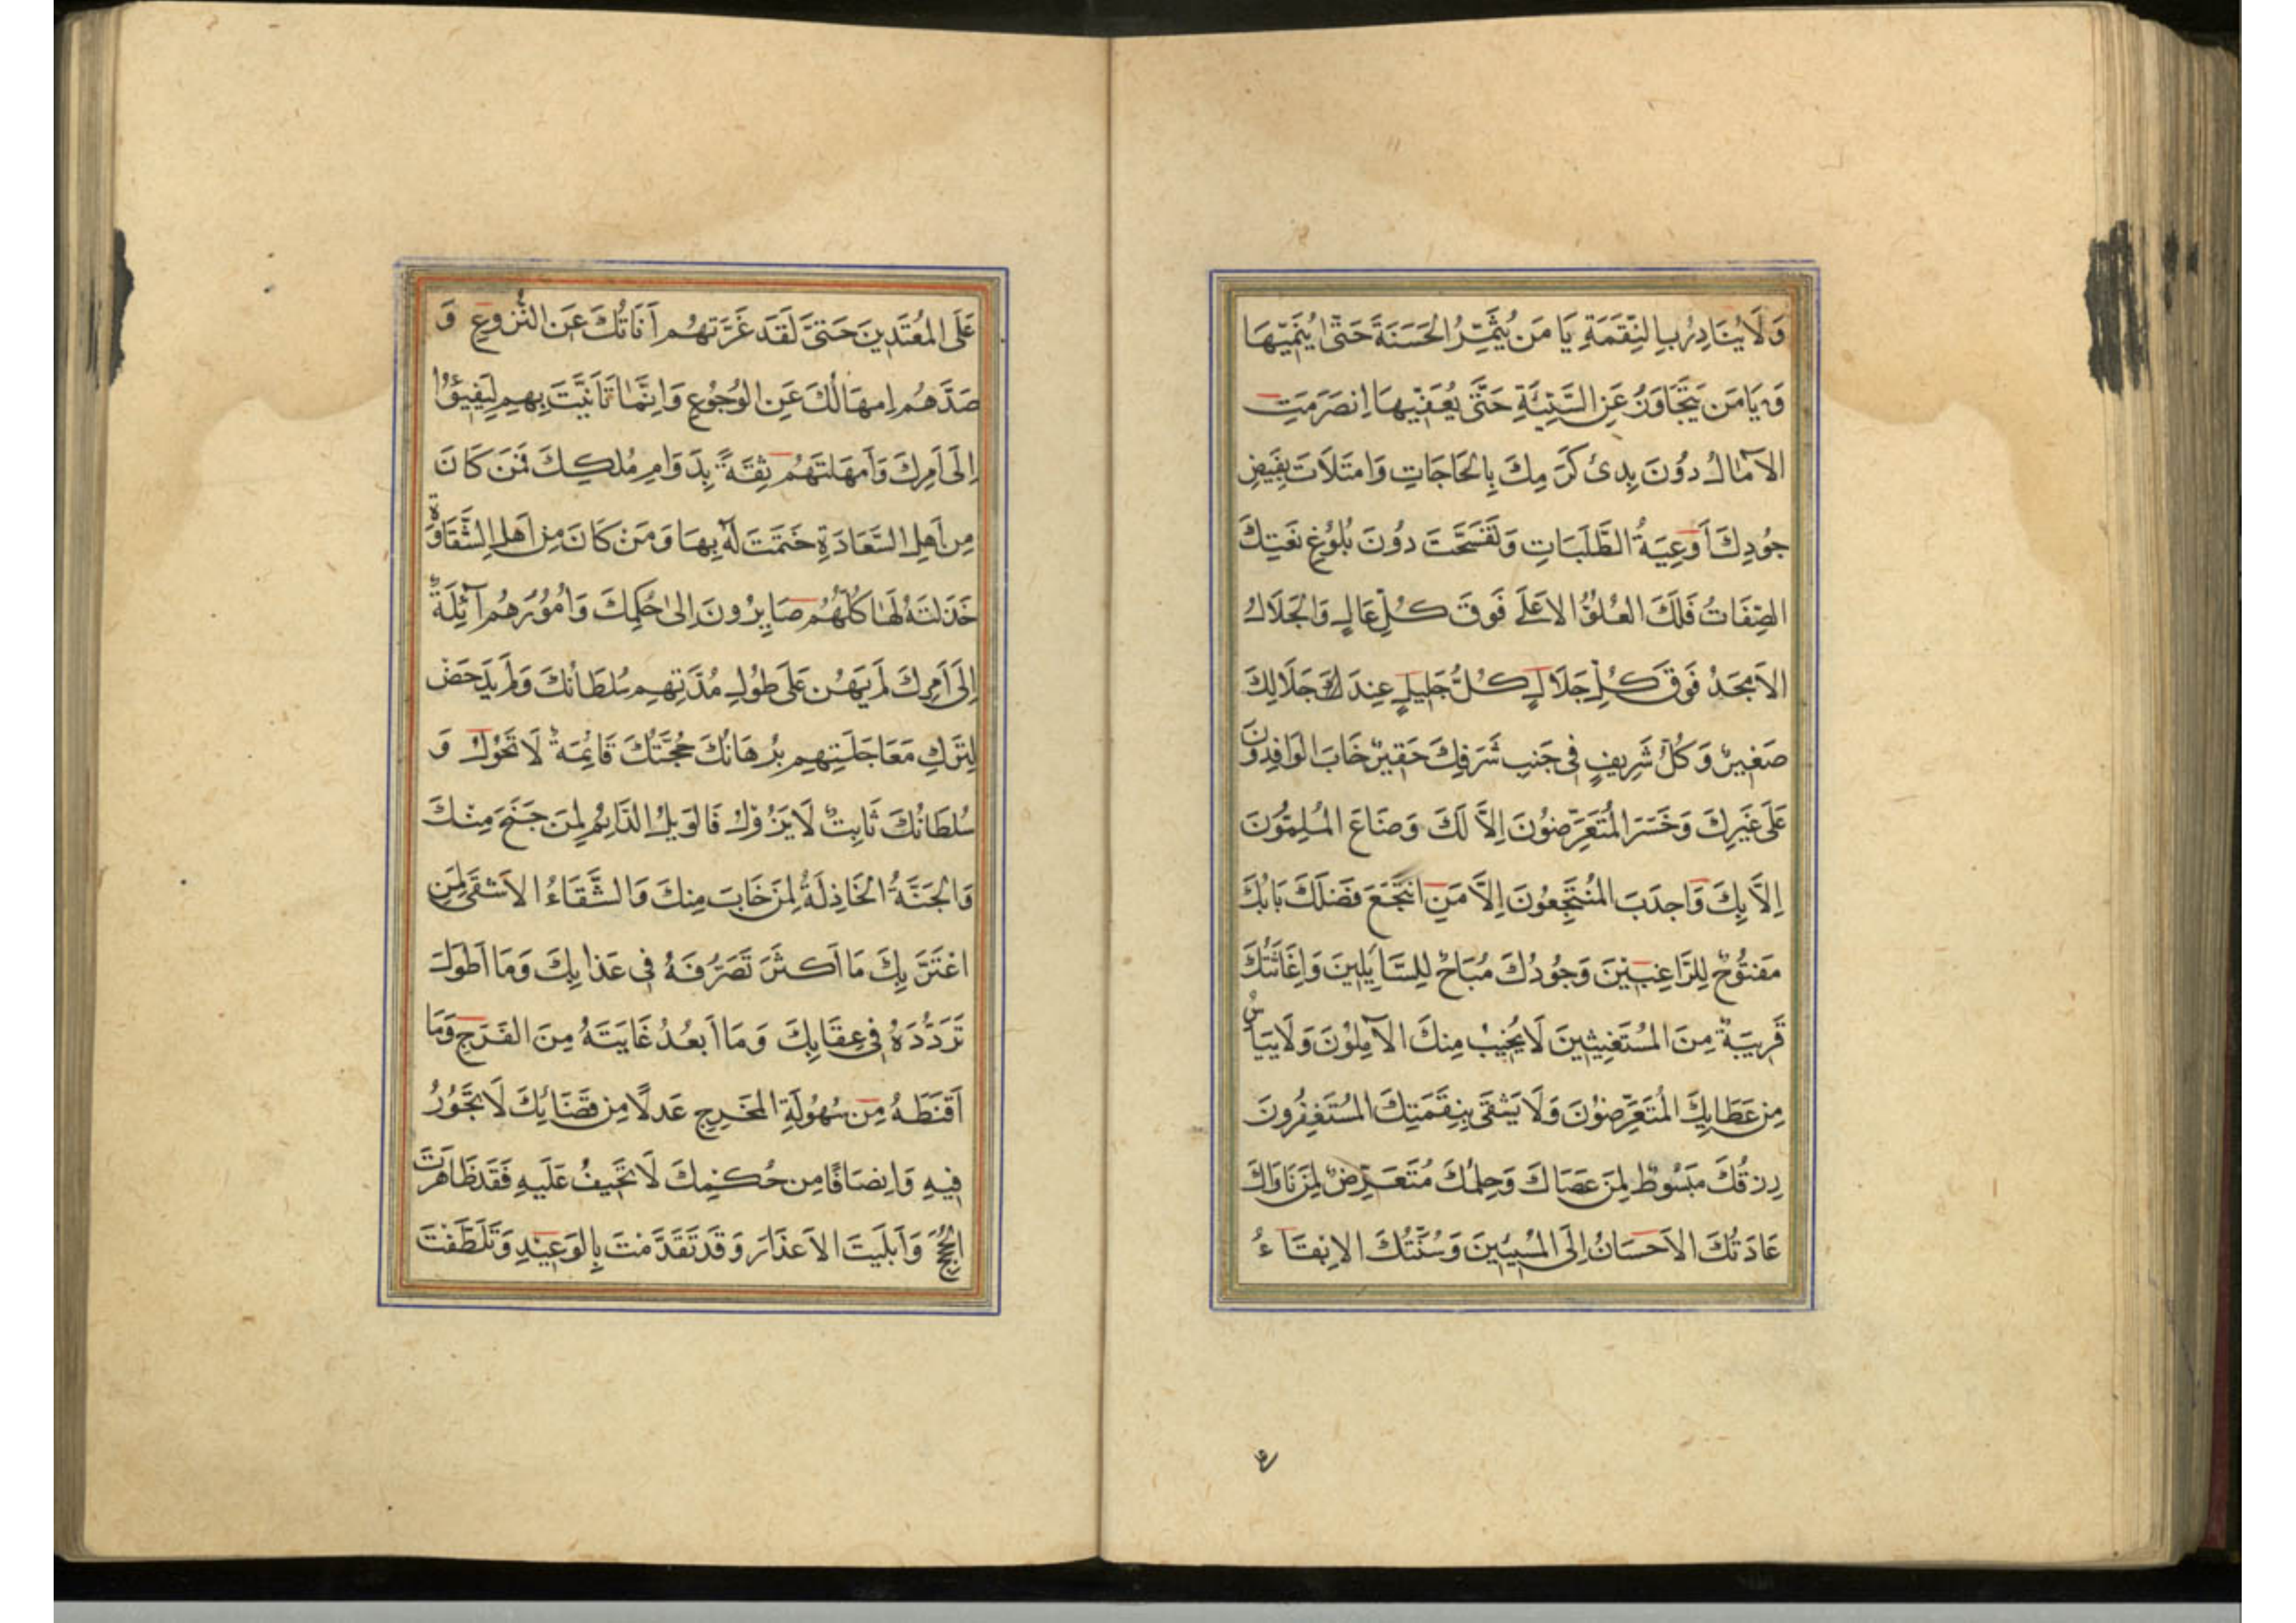 وَلَا يُبَادِرُ بِالنِّقْمَةِ يَا مَنْ يُثَمِّرُ الْحَسَنَةَ حَتّٰى يُنْمِيَهَا
وَ يَا مَنْ يَتَجَاوَزُ عَنِ السَّيِّئَةِ حَتّٰى يُعَفِّيَهَا اِنْصَرَمَتِ
الْآمَالُ دُونَ بِدٰى كَرَمِكَ بِالْحَاجَاتِ وَامْتَلَاَتْ بِفَيْضِ
جُودِكَ اَوْعِيَةُ الطَّلَبَاتِ وَتَفَسَّخَتْ دُونَ بُلُوغِ نَعْتِكَ
الصِّفَاتُ فَلَكَ الْعُلُوُّ الْاَعْلٰى فَوْقَ كُلِّ عَالٍ وَالْجَلَالُ
الْاَمْجَدُ فَوْقَ كُلِّ جَلَالٍ كُلُّ جَلِيلٍ عِنْدَكَ جَلَالِكَ
صَغِيرٌ وَ كُلُّ شَرِيفٍ فِى جَنْبِ شَرَفِكَ حَقِيرٌ خَابَ الْوَافِدُونَ
عَلٰى غَيْرِكَ وَخَسِرَ الْمُتَعَرِّضُونَ اِلَّا لَكَ وَضَاعَ الْمُلِمُّونَ
اِلَّا بِكَ وَاَجْدَبَ الْمُنْتَجِعُونَ اِلَّا مَنِ انْتَجَعَ فَضْلَكَ بَابُكَ
مَفْتُوحٌ لِلرَّاغِبِينَ وَجُودُكَ مُبَاحٌ لِلسَّائِلِينَ وَاِغَاثَتُكَ
قَرِيبَةٌ مِنَ الْمُسْتَغِيثِينَ لَا يَخِيبُ مِنْكَ الْآمِلُونَ وَلَا يَيْاَسُ
مِنْ عَطَائِكَ الْمُتَعَرِّضُونَ وَلَا يَشْقٰى بِنِقْمَتِكَ الْمُسْتَغْفِرُونَ
رِزْقُكَ مَبْسُوطٌ لِمَنْ عَصَاكَ وَحِلْمُكَ مُتَعَرِّضٌ لِمَنْ نَاوَاكَ
عَادَتُكَ الْاِحْسَانُ اِلَى الْمُسِيئِينَ وَسُنَّتُكَ الْاِبْقَاءُ
عَلَى الْمُعْتَدِينَ حَتّٰى لَقَدْ غَرَّتْهُمْ اَنَاتُكَ عَنِ النُّزُوعِ وَ
صَدَّهُمْ اِمْهَالُكَ عَنِ الرُّجُوعِ وَاِنَّمَا تَاَنَّيْتَ بِهِمْ لِيَفِيئُوا
اِلٰى اَمْرِكَ وَاَمْهَلْتَهُمْ ثِقَةً بِدَوَامِ مُلْكِكَ فَمَنْ كَانَ
مِنْ اَهْلِ السَّعَادَةِ خَتَمْتَ لَهُ بِهَا وَ مَنْ كَانَ مِنْ اَهْلِ الشَّقَاوَةِ
خَذَلْتَهُ لَهَا كُلُّهُمْ صَايِرُونَ اِلٰى حُكْمِكَ وَاُمُورُهُمْ آئِلَةٌ
اِلٰى اَمْرِكَ لَمْ يَهُنْ عَلٰى طُولِ مُدَّتِهِمْ سُلْطَانُكَ وَلَمْ يَدْحَضْ
لِتَرْكِ مُعَاجَلَتِهِمْ بُرْهَانُكَ حُجَّتُكَ قَائِمَةٌ لَا تَحُولُ وَ
سُلْطَانُكَ ثَابِتٌ لَا يَزُولُ فَالْوَيْلُ الدَّائِمُ لِمَنْ جَنَحَ مِنْكَ
وَالْخَيْبَةُ الْخَاذِلَةُ لِمَنْ خَابَ مِنْكَ وَالشَّقَاءُ الْاَشْقٰى لِمَنِ
اغْتَرَّ بِكَ مَا اَكْثَرَ تَصَرُّفَهُ فِى عَذَابِكَ وَمَا اَطْوَلَ
تَرَدُّدَهُ فِى عِقَابِكَ وَمَا اَبْعَدَ غَايَتَهُ مِنَ الْفَرَجِ وَمَا
اَقْنَطَهُ مِنْ سُهُولَةِ الْمَخْرَجِ عَدْلًا مِنْ قَضَائِكَ لَا تَجُورُ
فِيهِ وَاِنْصَافًا مِنْ حُكْمِكَ لَا تَحِيفُ عَلَيْهِ فَقَدْ ظَاهَرْتَ
الْحُجَجَ وَاَبْلَيْتَ الْاَعْذَارَ وَ قَدْ تَقَدَّمْتَ بِالْوَعِيدِ وَتَلَطَّفْتَ